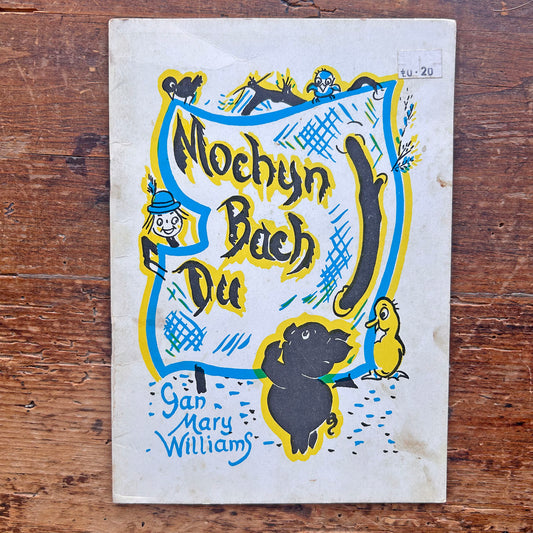 £0·20
Mochyn
Bach
Du
Gan
Mary
Williams